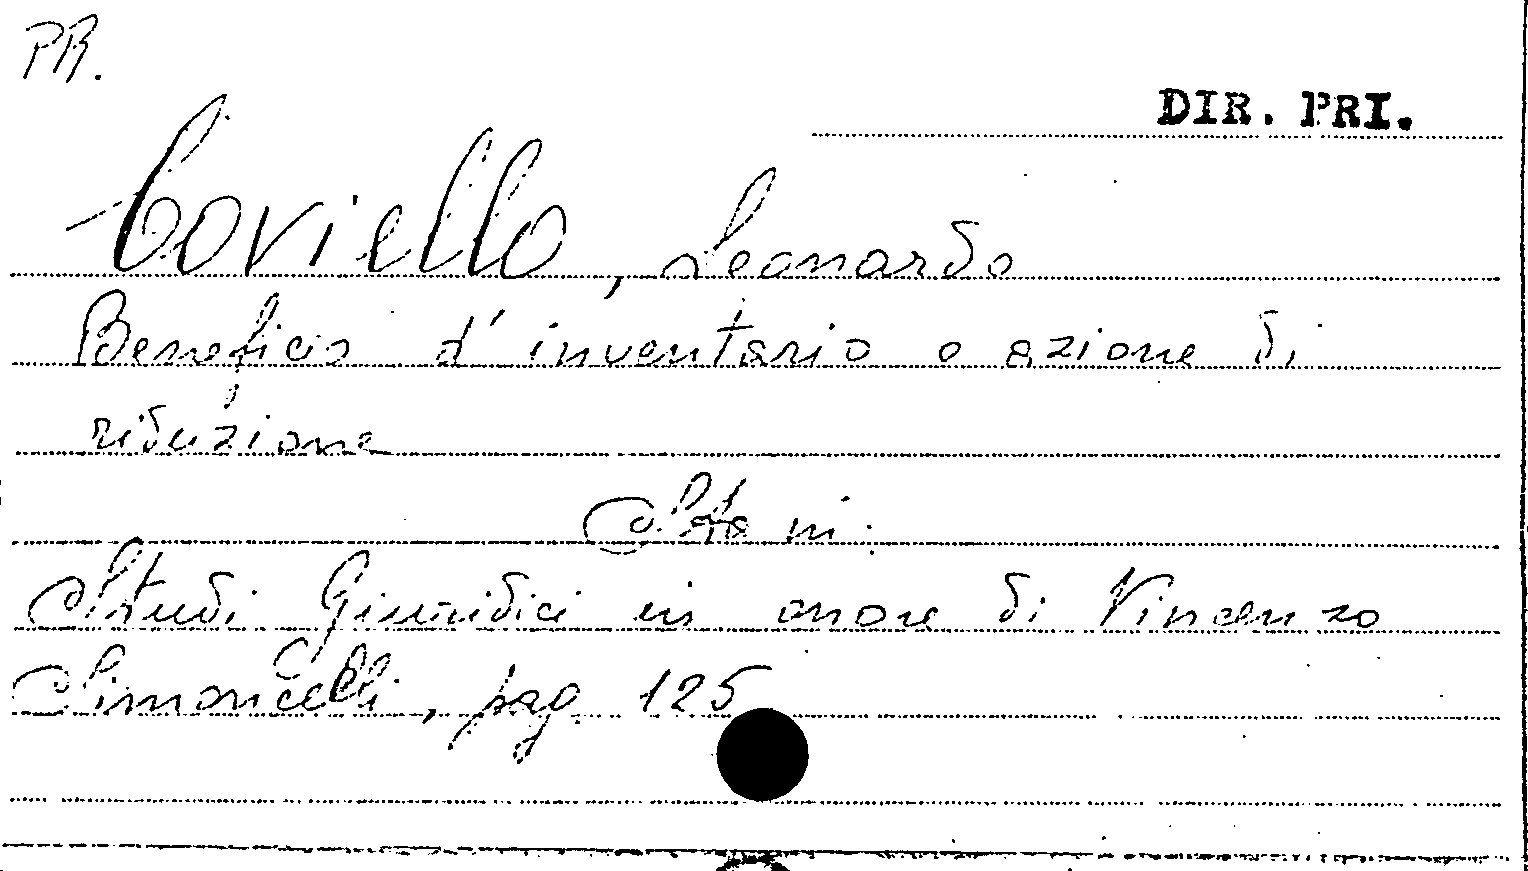 PR.
DIR. PRI.
Coviello, Leonardo
Beneficio d'inventario e azione di
riduzione
Sta in:
Studi Giuridici in onore di Vincenzo
Simoncelli, pag. 125